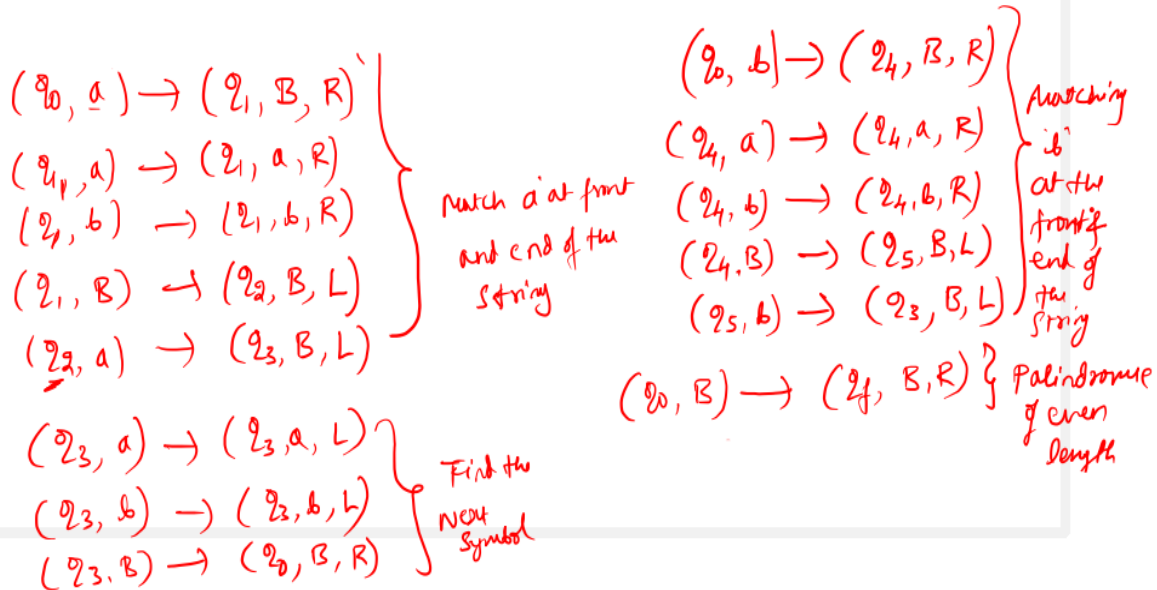 (q₀, a) → (q₁, B, R)
(q₁, a) → (q₁, a, R)
(q₁, b) → (q₁, b, R)
(q₁, B) → (q₂, B, L)
(q₂, a) → (q₃, B, L)
match a at front
and end of the
string
(q₃, a) → (q₃, a, L)
(q₃, b) → (q₃, b, L)
(q₃, B) → (q₀, B, R)
Find the
Next
symbol
(q₀, b) → (q₄, B, R)
(q₄, a) → (q₄, a, R)
(q₄, b) → (q₄, b, R)
(q₄, B) → (q₅, B, L)
(q₅, b) → (q₃, B, L)
Matching
'b'
at the
front &
end of
the
string
(q₀, B) → (q_f, B, R) } Palindrome
of even
length